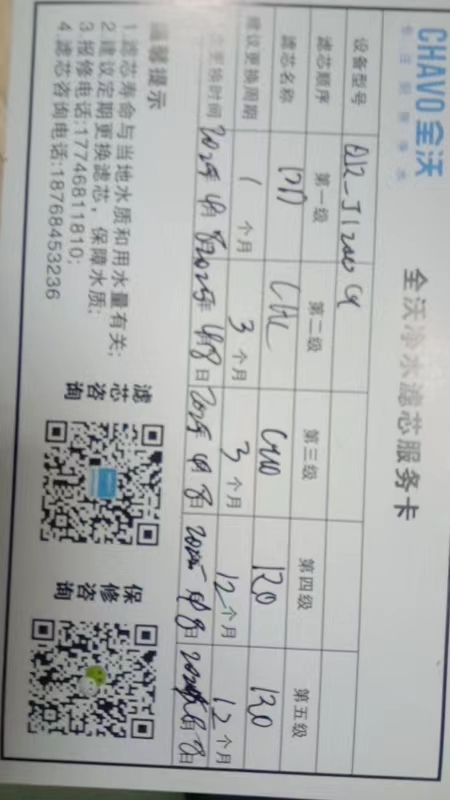 CHAVO全沃
专注厨房净水
全沃净水滤芯服务卡
设备型号
滤芯顺序 第一级 第二级 第三级 第四级 第五级
滤芯名称 RO RO
建议更换周期 1个月 3个月 3个月 12个月 12个月
更换时间 2025年4月8日 2025年4月8日 2025年4月8日
温馨提示
1.滤芯寿命与当地水质和用水量有关;
2.建议定期更换滤芯，保障水质;
3.报修电话:17746811810;
4.滤芯咨询电话:18768453236
滤芯咨询
保修咨询